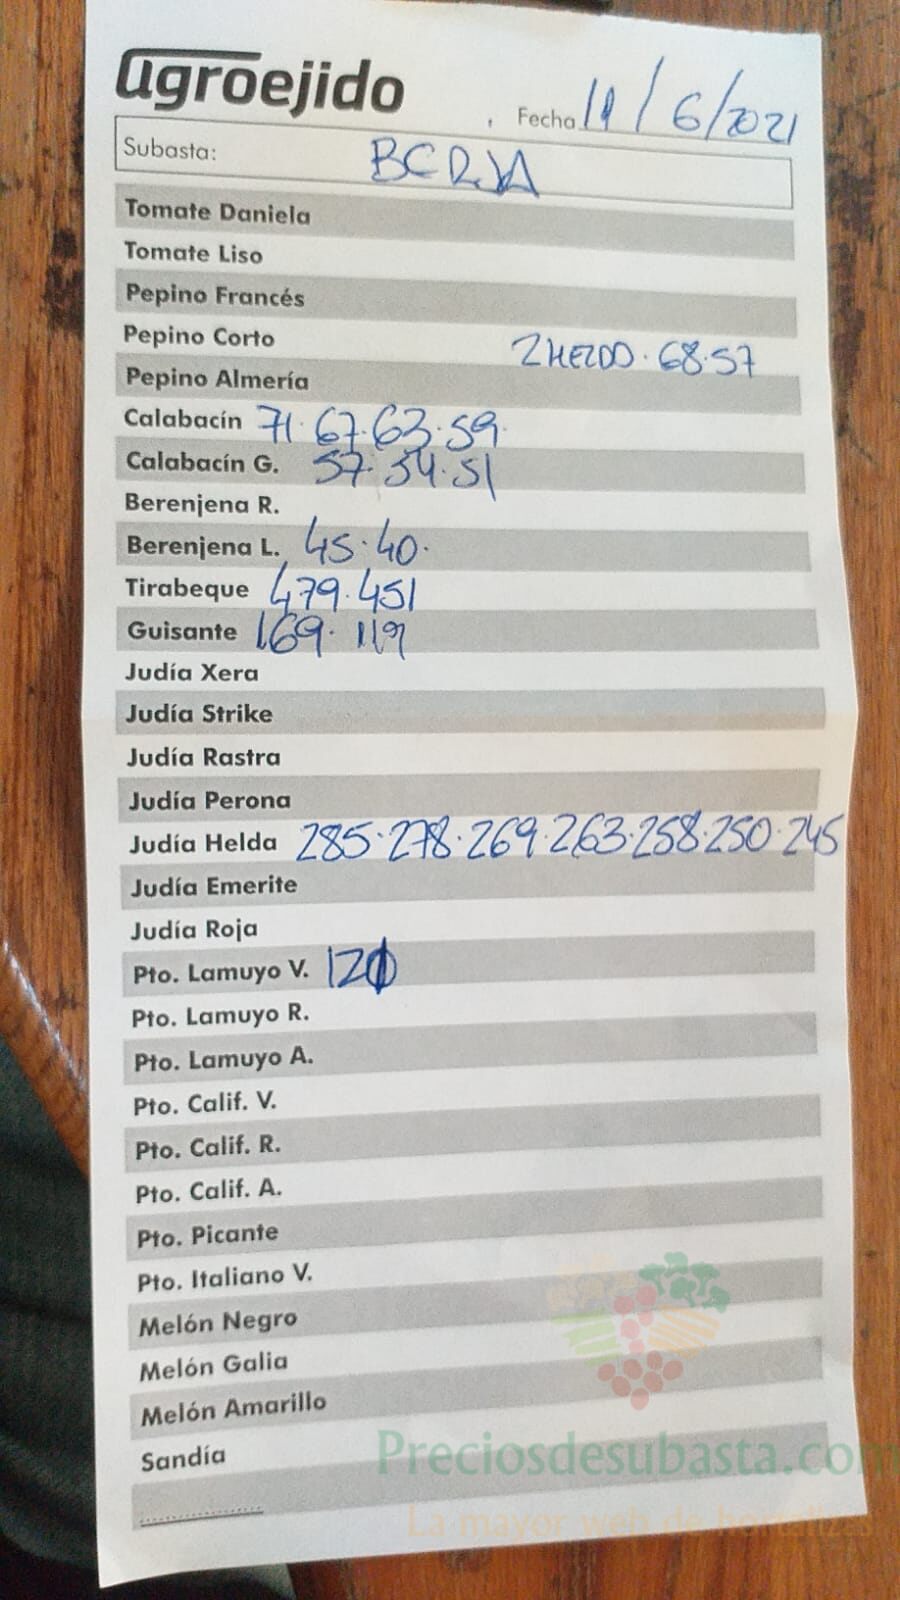 agroejido
Fecha 11/6/2021
Subasta: BERJA
Tomate Daniela
Tomate Liso
Pepino Francés
Pepino Corto
68·57
Pepino Almería
Calabacín 71·67·63·59·
Calabacín G. 57·54·51
Berenjena R.
Berenjena L. 45·40·
Tirabeque 479·451
Guisante 169·119
Judía Xera
Judía Strike
Judía Rastra
Judía Perona
Judía Helda 285·278·269·263·258·250·245
Judía Emerite
Judía Roja
Pto. Lamuyo V. 120
Pto. Lamuyo R.
Pto. Lamuyo A.
Pto. Calif. V.
Pto. Calif. R.
Pto. Calif. A.
Pto. Picante
Pto. Italiano V.
Melón Negro
Melón Galia
Melón Amarillo
Sandía
Preciosdesubasta.com
La mayor web de hortalizas